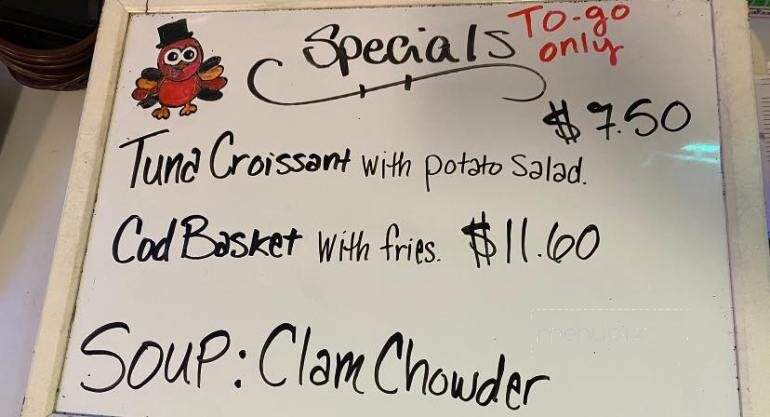 Specials To-go
only
$7.50
Tuna Croissant with potato Salad.
Cod Basket with fries. $11.60
Soup: Clam Chowder